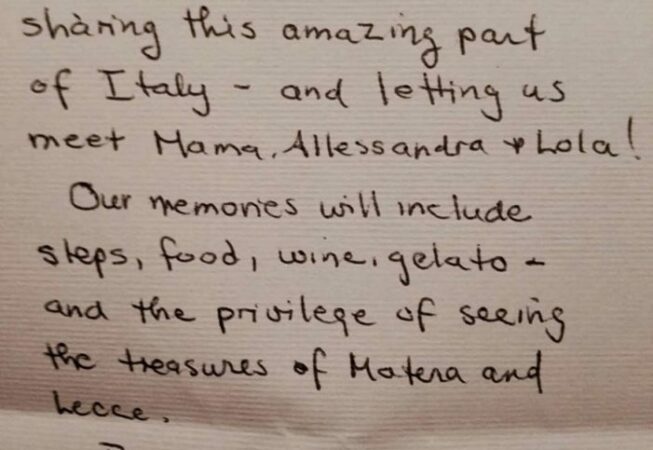 sharing this amazing part
of Italy - and letting us
meet Mama, Allessandra + Lola!
Our memories will include
steps, food, wine, gelato -
and the privilege of seeing
the treasures of Matera and
Lecce.